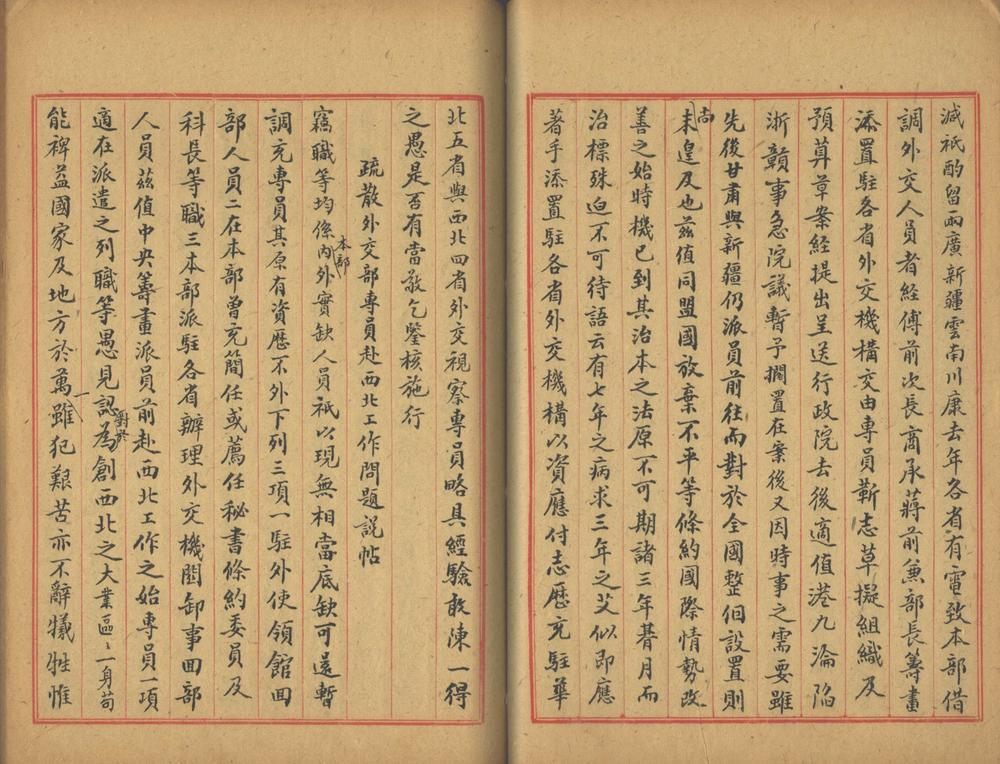 減祇酌留兩廣新疆雲南川康去年各省有電致本部借
調外交人員者經傅前次長商承蔣前兼部長籌畫
添置駐各省外交機構交由專員靳志草擬組織及
預算草案經提出呈送行政院去後適值港九淪陷
浙贛事急院議暫予擱置在案後又因時事之需要雖
先後甘肅與新疆仍派員前往而對於全國整個設置則
尚未遑及也茲值同盟國放棄不平等條約國際情勢改
善之始時機已到其治本之法原不可期諸三年朞月而
治標殊迫不可待語云有七年之病求三年之艾似即應
著手添置駐各省外交機構以資應付志歷充駐華
北五省與西北四省外交視察專員略具經驗敢陳一得
之愚是否有當敬乞鑒核施行
疏散外交部專員赴西北工作問題說帖
竊職等均係本部內外實缺人員祇以現無相當底缺可還暫
調充專員其原有資歷不外下列三項一駐外使領館回
部人員二在本部曾充簡任或薦任秘書條約委員及
科長等職三本部派駐各省辦理外交機關卸事回部
人員茲值中央籌畫派員前赴西北工作之始專員一項
適在派遣之列職等愚見認為對於創西北之大業區〻一身苟
能裨益國家及地方於萬一雖犯艱苦亦不辭犧牲惟